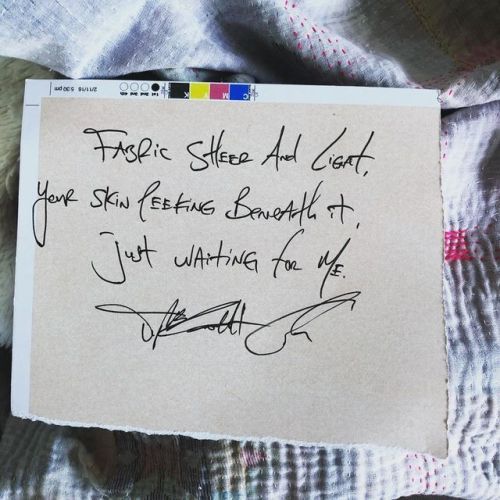 Fabric sheer and light,
your skin peeking beneath it,
just waiting for me.
2/11/16 5:30 pm